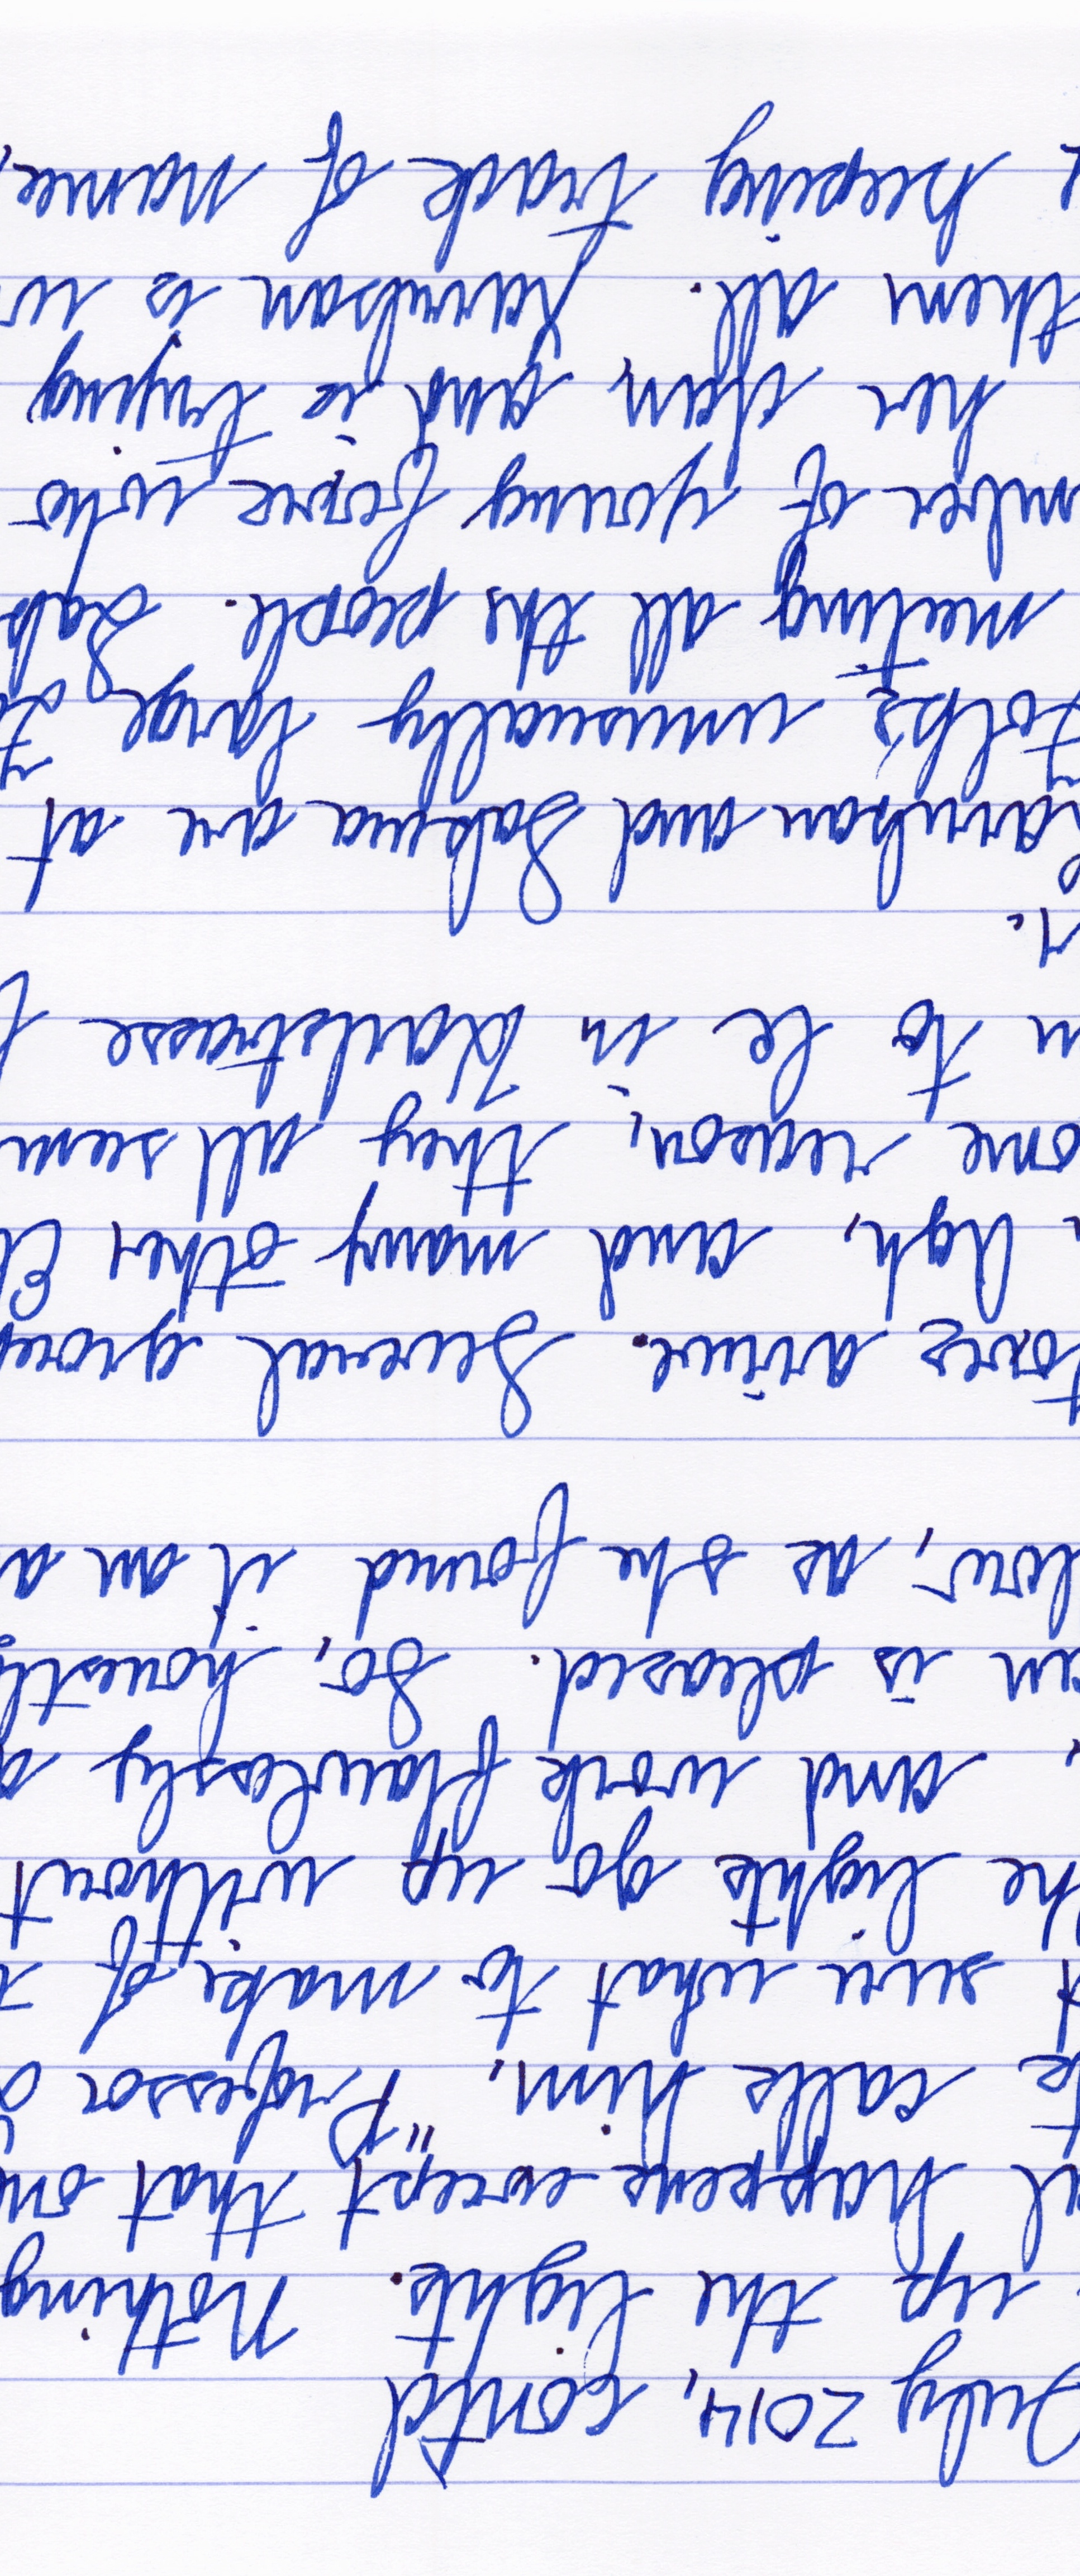 July 2014, cont'd
up the lights. Nothing
happens except that on
calls him, "Professor
sure what to make of
he lights go up without
, and work flawlessly
is pleased. So, honestl
low, as she found it on a
foxes arrive. Several group
Ugh, and many other El
ome reason, they all seem
n to be in Blaustrasse f
r.
and Sabrina are at
Folks's unusually large
meeting all the people. Sab
mber of young foxes who
her clan, and is trying
them all. is wr
keeping track of names,